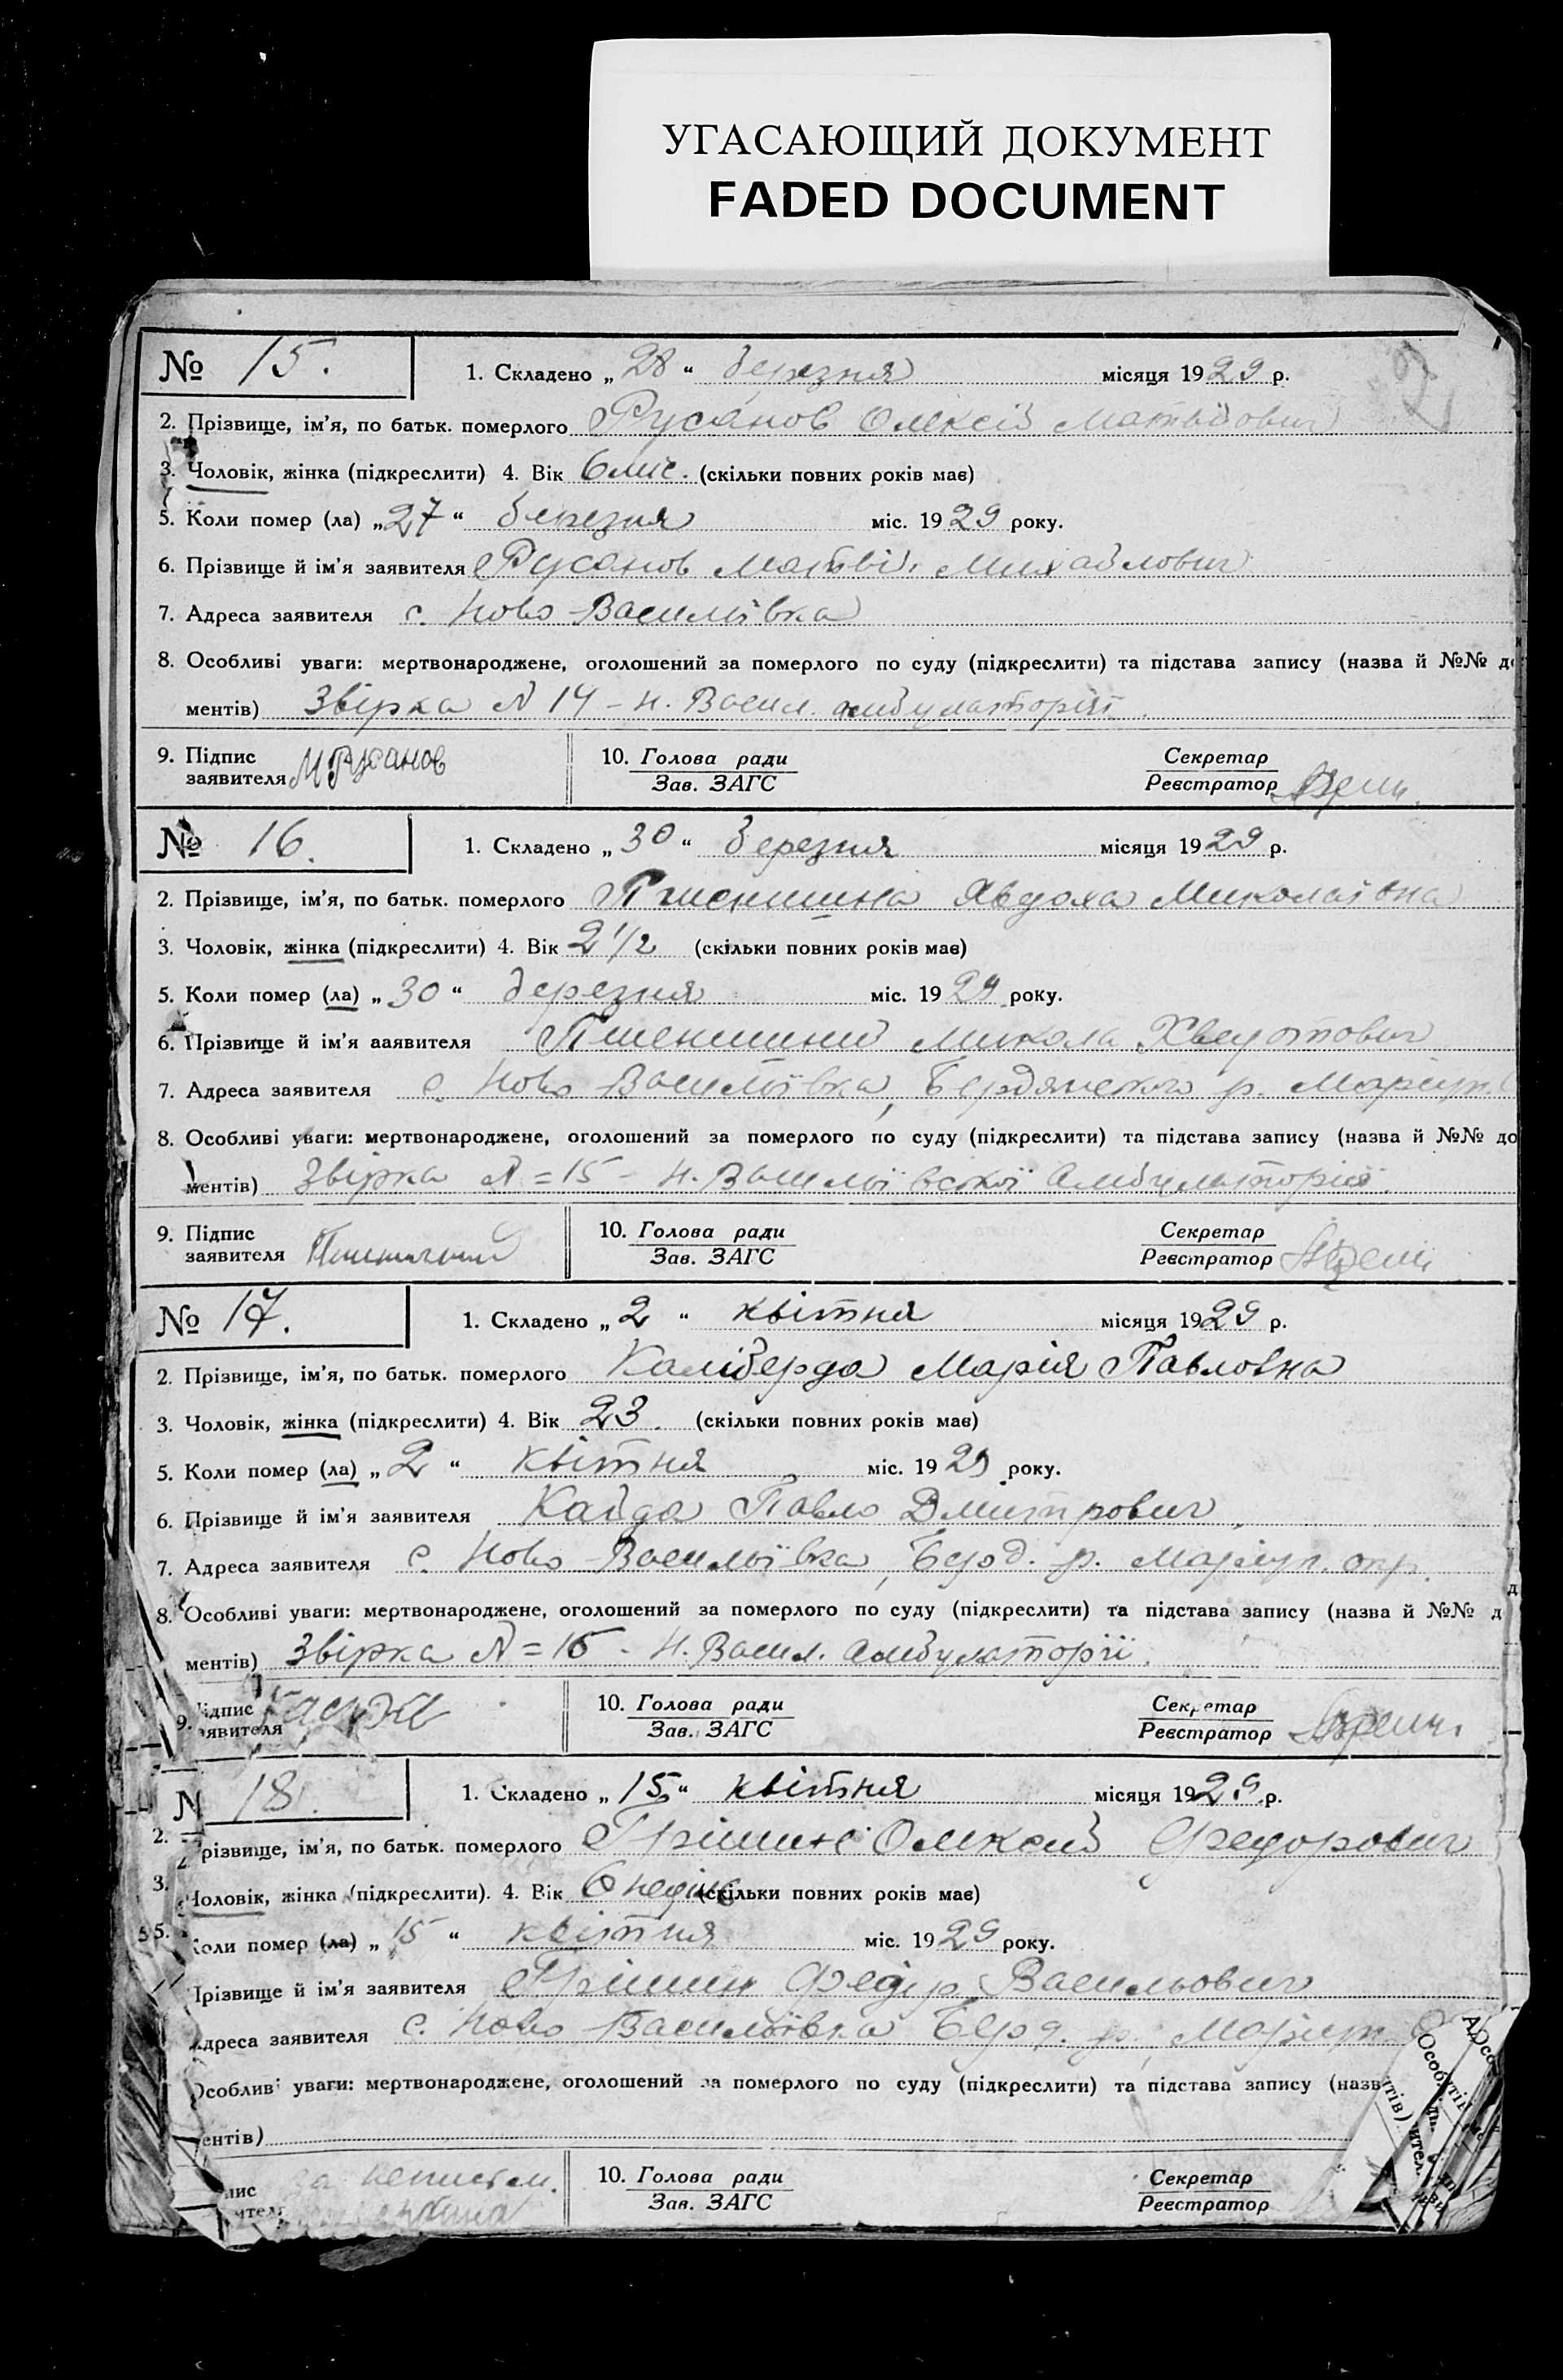 УГАСАЮЩИЙ ДОКУМЕНТ
FADED DOCUMENT
№ 15. 1. Складено „28“ березня місяця 1929 р.
2. Прізвище, ім'я, по батьк. померлого Русанов Олексій Матвійович
3. Чоловік, жінка (підкреслити) 4. Вік 6 міс. (скільки повних років має)
5. Коли помер (ла) „27“ березня міс. 1929 року.
6. Прізвище й ім'я заявителя Русанов Матвій Михайлович
7. Адреса заявителя с. Ново Василівка
8. Особливі уваги: мертвонароджене, оголошений за померлого по суду (підкреслити) та підстава запису (назва й №№ до
ментів) Звірка N 14 – Н. Васил. амбулаторії.
9. Підпис заявителя МРусанов 10. Голова ради Секретар
Зав. ЗАГС Реєстратор
№ 16. 1. Складено „30“ березня місяця 1929 р.
2. Прізвище, ім'я, по батьк. померлого Пшенишна Явдоха Миколаівна
3. Чоловік, жінка (підкреслити) 4. Вік 2 1/2 (скільки повних років має)
5. Коли помер (ла) „30“ березня міс. 1929 року.
6. Прізвище й ім'я заявителя Пшенишний Микола Хведотович
7. Адреса заявителя с. Ново Васильївка, Бердянского р. Маріуп.
8. Особливі уваги: мертвонароджене, оголошений за померлого по суду (підкреслити) та підстава запису (назва й №№ до
ментів) Звірка N = 15 – Н. Васильївської Амбулаторії.
9. Підпис заявителя Пшенишний 10. Голова ради Секретар
Зав. ЗАГС Реєстратор
№ 17. 1. Складено „2“ квітня місяця 1929 р.
2. Прізвище, ім'я, по батьк. померлого Каліберда Марія Павловна
3. Чоловік, жінка (підкреслити) 4. Вік 23. (скільки повних років має)
5. Коли помер (ла) „2“ квітня міс. 1929 року.
6. Прізвище й ім'я заявителя Кайда Павло Дмитрович,
7. Адреса заявителя с. Ново Васильївка, Берд. р. Маріуп. окр.
8. Особливі уваги: мертвонароджене, оголошений за померлого по суду (підкреслити) та підстава запису (назва й №№ д
ментів) Звірка N = 16 – Н. Васил. амбулаторії.
9. ідпис аявителя 10. Голова ради Секретар
Зав. ЗАГС Реєстратор
N 18. 1. Складено „15“ квітня місяця 1929 р.
2. різвище, ім'я, по батьк. померлого Грішин Олексій Федорович
3. Чоловік, жінка (підкреслити). 4. Вік 6 неділь (скільки повних років має)
5. Коли помер (ла) „15“ квітня міс. 1929 року.
Прізвище й ім'я заявителя Грішин Федір Васильович
Адреса заявителя с. Ново Васильївка Берд. р. Маріуп.
Особливі уваги: мертвонароджене, оголошений за померлого по суду (підкреслити) та підстава запису (назв
ентів)
пис за неписьм. 10. Голова ради Секретар
Зав. ЗАГС Реєстратор